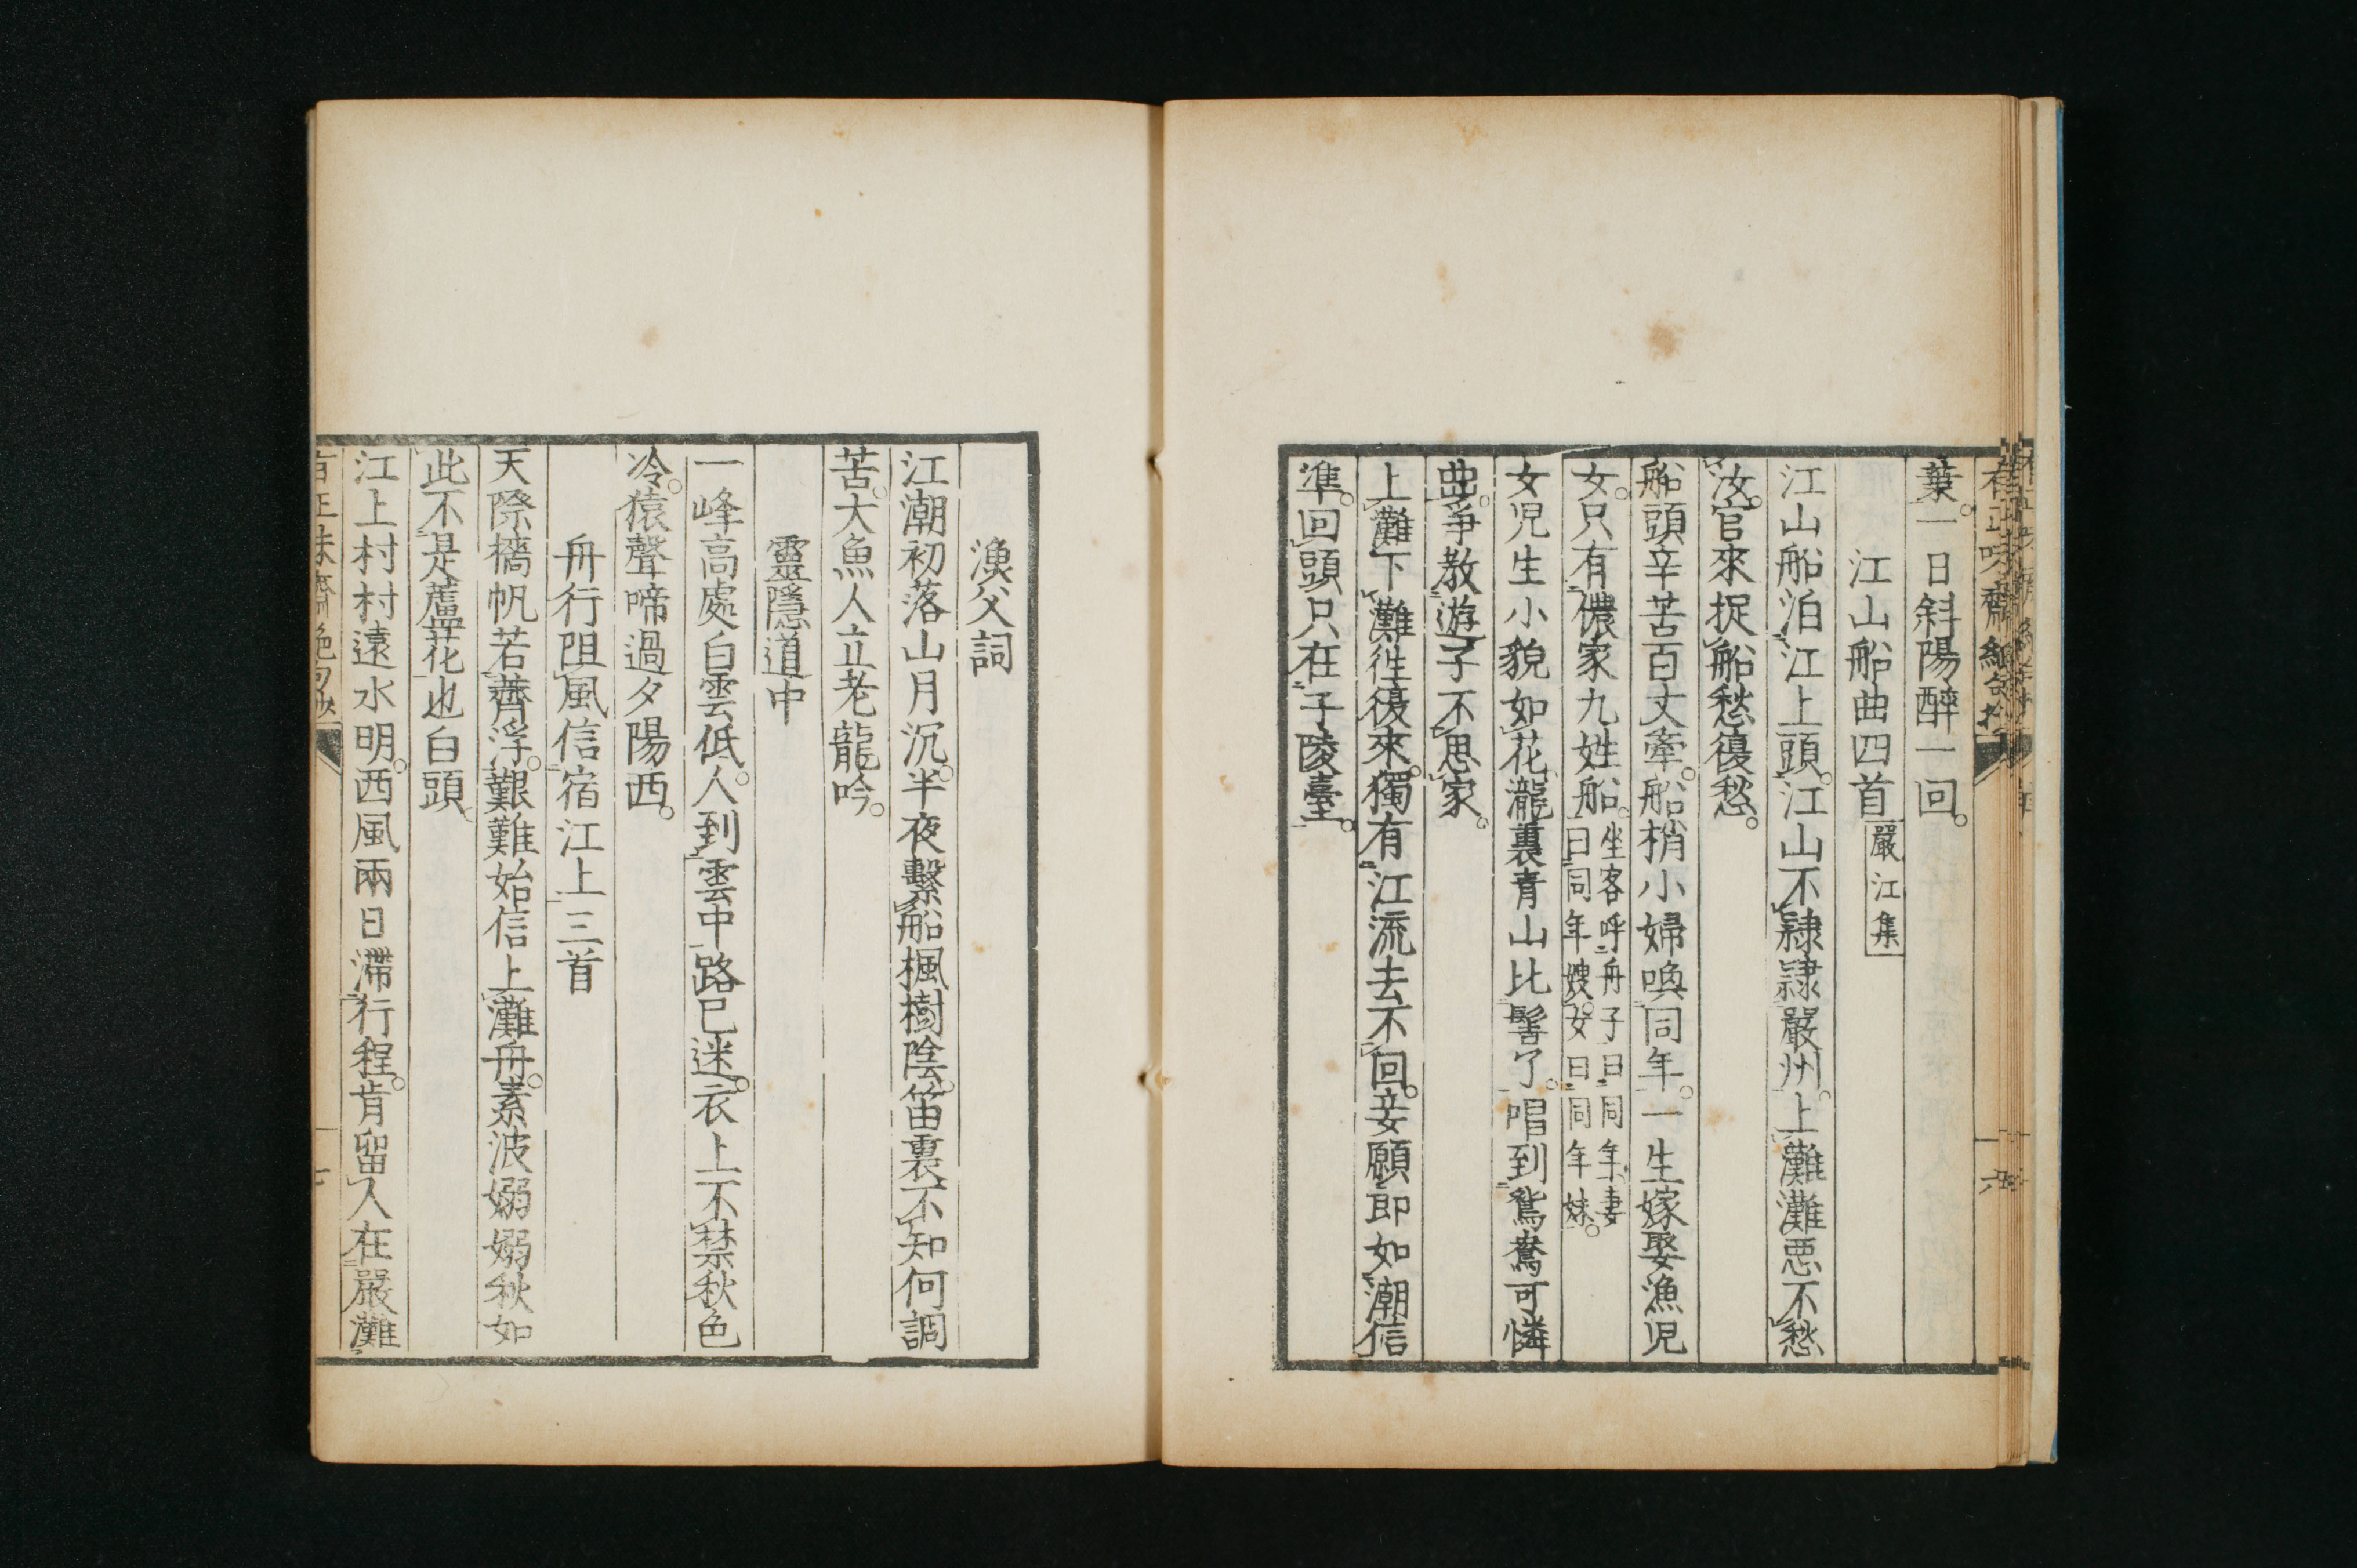 葉一日斜陽醉一回
江山船曲四首 嚴江集
江山船泊江上頭江山不隷隷嚴州上灘灘惡不愁
汝官來捉船愁復愁
船頭辛苦百丈牽船梢小婦喚同年一生嫁娶漁児
女只有儂家九姓船 坐客呼舟子曰同年妻
曰同年嫂女曰同年妹
女児生小貌如花瀧裏青山比髻了唱到鴛鴦可憐
曲爭教遊子不思家
上灘下灘徃復來獨有江流去不回妾願即如潮信
準回頭只在子陵臺
漁父詞
江潮初落山月沉半夜繫船楓樹陰笛裏不知何調
苦大魚人立老龍吟
靈隱道中
一峰高處白雲低人到雲中路已迷衣上不禁秋色
冷猿聲啼過夕陽西
舟行阻風信宿江上三首
天際檣帆若薺浮艱難始信上灘舟素波嫋嫋秋如
此不是蘆花也白頭
江上村村遠水明西風兩日滯行程肯留人在嚴灘